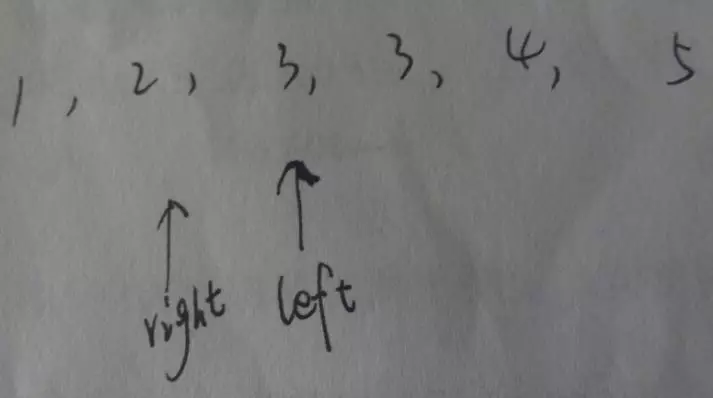 1, 2, 3, 3, 4, 5
right left